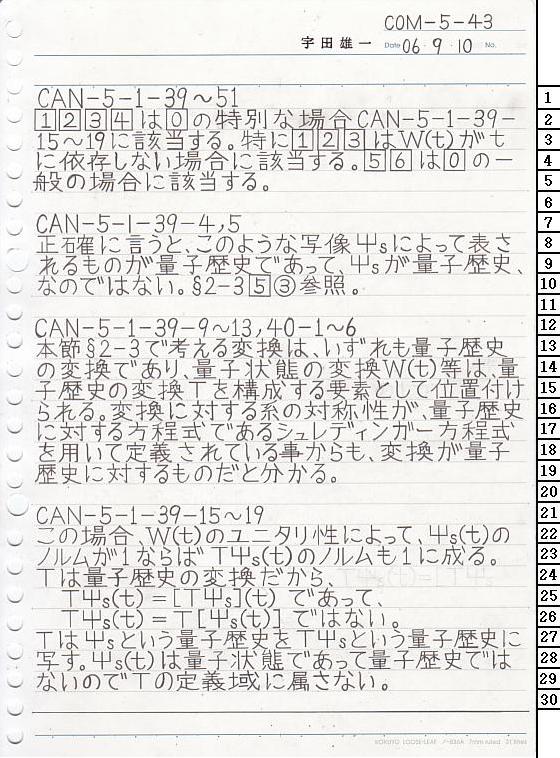 COM-5-43
宇田雄一 Date 06・9・10 No.
CAN-5-1-39～51
1234は0の特別な場合CAN-5-1-39-
15～19に該当する。特に123はW(t)がt
に依存しない場合に該当する。56は0の一
般の場合に該当する。
CAN-5-1-39-4,5
正確に言うと、このような写像Ψsによって表さ
れるものが量子歴史であって、Ψsが量子歴史、
なのではない。§2-35③参照。
CAN-5-1-39-9～13,40-1～6
本節§2-3で考える変換は、いずれも量子歴史
の変換であり、量子状態の変換W(t)等は、量
子歴史の変換Tを構成する要素として位置付け
られる。変換に対する系の対称性が、量子歴史
に対する方程式であるシュレディンガー方程式
を用いて定義されている事からも、変換が量子
歴史に対するものだと分かる。
CAN-5-1-39-15～19
この場合、W(t)のユニタリ性によって、Ψs(t)の
ノルムが1ならばTΨs(t)のノルムも1に成る。
Tは量子歴史の変換だから、
TΨs(t)=[TΨs](t) であって、
TΨs(t)=T[Ψs(t)] ではない。
TはΨsという量子歴史をTΨsという量子歴史に
写す。Ψs(t)は量子状態であって量子歴史では
ないのでTの定義域に属さない。
KOKUYO LOOSE-LEAF ノ-836A 7mm ruled 31 lines
1
2
3
4
5
6
7
8
9
10
11
12
13
14
15
16
17
18
19
20
21
22
23
24
25
26
27
28
29
30